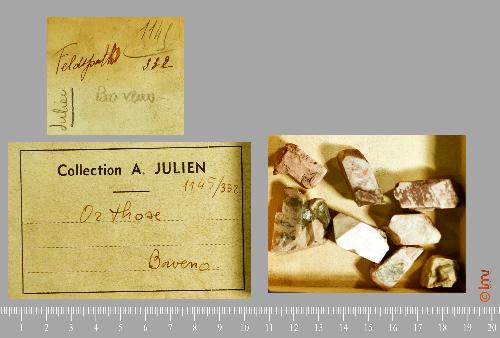 1145
Feldspath 332
Julien
Baveno
Collection A. JULIEN
1145/332
Orthose
Baveno
© lmv
1 2 3 4 5 6 7 8 9 10 11 12 13 14 15 16 17 18 19 20